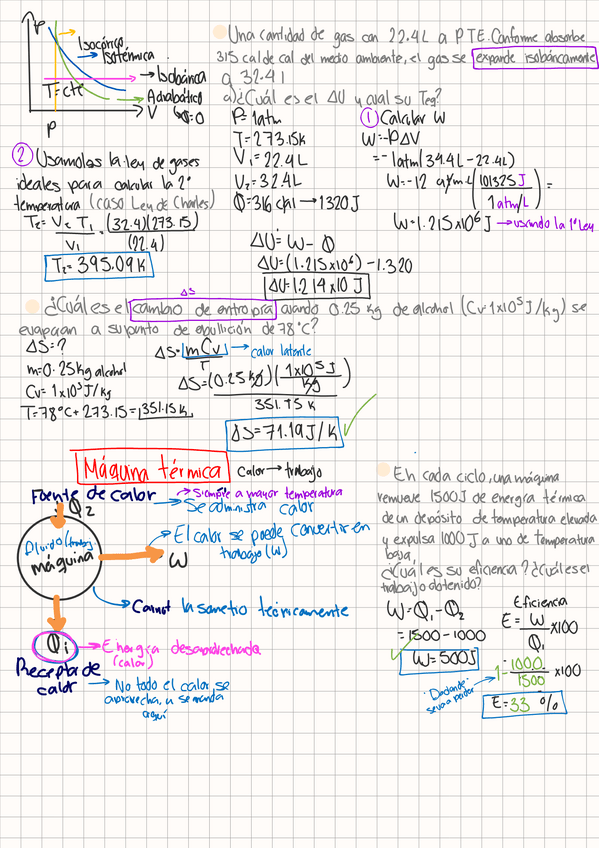 P
Isocórico
Isotérmica
Isobárica
T=cte
Adiabático
V
Q=0
P
Una cantidad de gas con 22.4L a PTE. Conforme absorbe
315 cal de cal del medio ambiente, el gas se expande isobáricamente
a 32.4 l
a) ¿Cuál es el ΔU y cual su Teq?
P=1atm
T=273.15K
V₁=22.4L
V₂=32.4L
Q=316 cal → 1320 J
ΔU=W-Q
ΔU=(1.215x10⁶)-1.320
ΔU=1.214x10 J
① Calcular W
W=-PΔV
=-1atm(34.4L-22.4L)
W=-12 atm·L (101325 J / 1atm/L) =
W=1.215x10⁶ J → usando la 1ª Ley
② Usamos la ley de gases
ideales para calcular la 2ª
temperatura (caso Ley de Charles)
T₂=V₂T₁/V₁=(32.4)(273.15)/(22.4)
T₂=395.09K
ΔS
¿Cuál es el cambio de entropía cuando 0.25 kg de alcohol (Cv=1x10⁵J/kg) se
evaporan a su punto de ebullición de 78°C?
ΔS=?
m=0.25kg alcohol
Cv=1x10⁵J/kg
T=78°C+273.15=351.15K
ΔS=mCv/T → calor latente
ΔS=(0.25kg)(1x10⁵J/kg)/351.15K
ΔS=71.19J/K
Máquina térmica
Calor → trabajo
Fuente de calor
→ Siempre a mayor temperatura
→ Se administra calor
Q₂
Fluido
máquina
W
→ El calor se puede convertir en
trabajo (W)
→ Carnot la
teóricamente
Q₁
→ Energía desaprovechada
(calor)
Receptor de
calor
→ No todo el calor se
aprovecha, y se manda
aquí
En cada ciclo, una máquina
remueve 1500J de energía térmica
de un depósito de temperatura elevada
y expulsa 1000 J a uno de temperatura
baja.
¿Cuál es su eficiencia? ¿Cuál es el
trabajo obtenido?
W=Q₁-Q₂
=1500-1000
W=500J
Eficiencia
E=W/Q₁ x100
1-1000/1500 x100
E=33 %